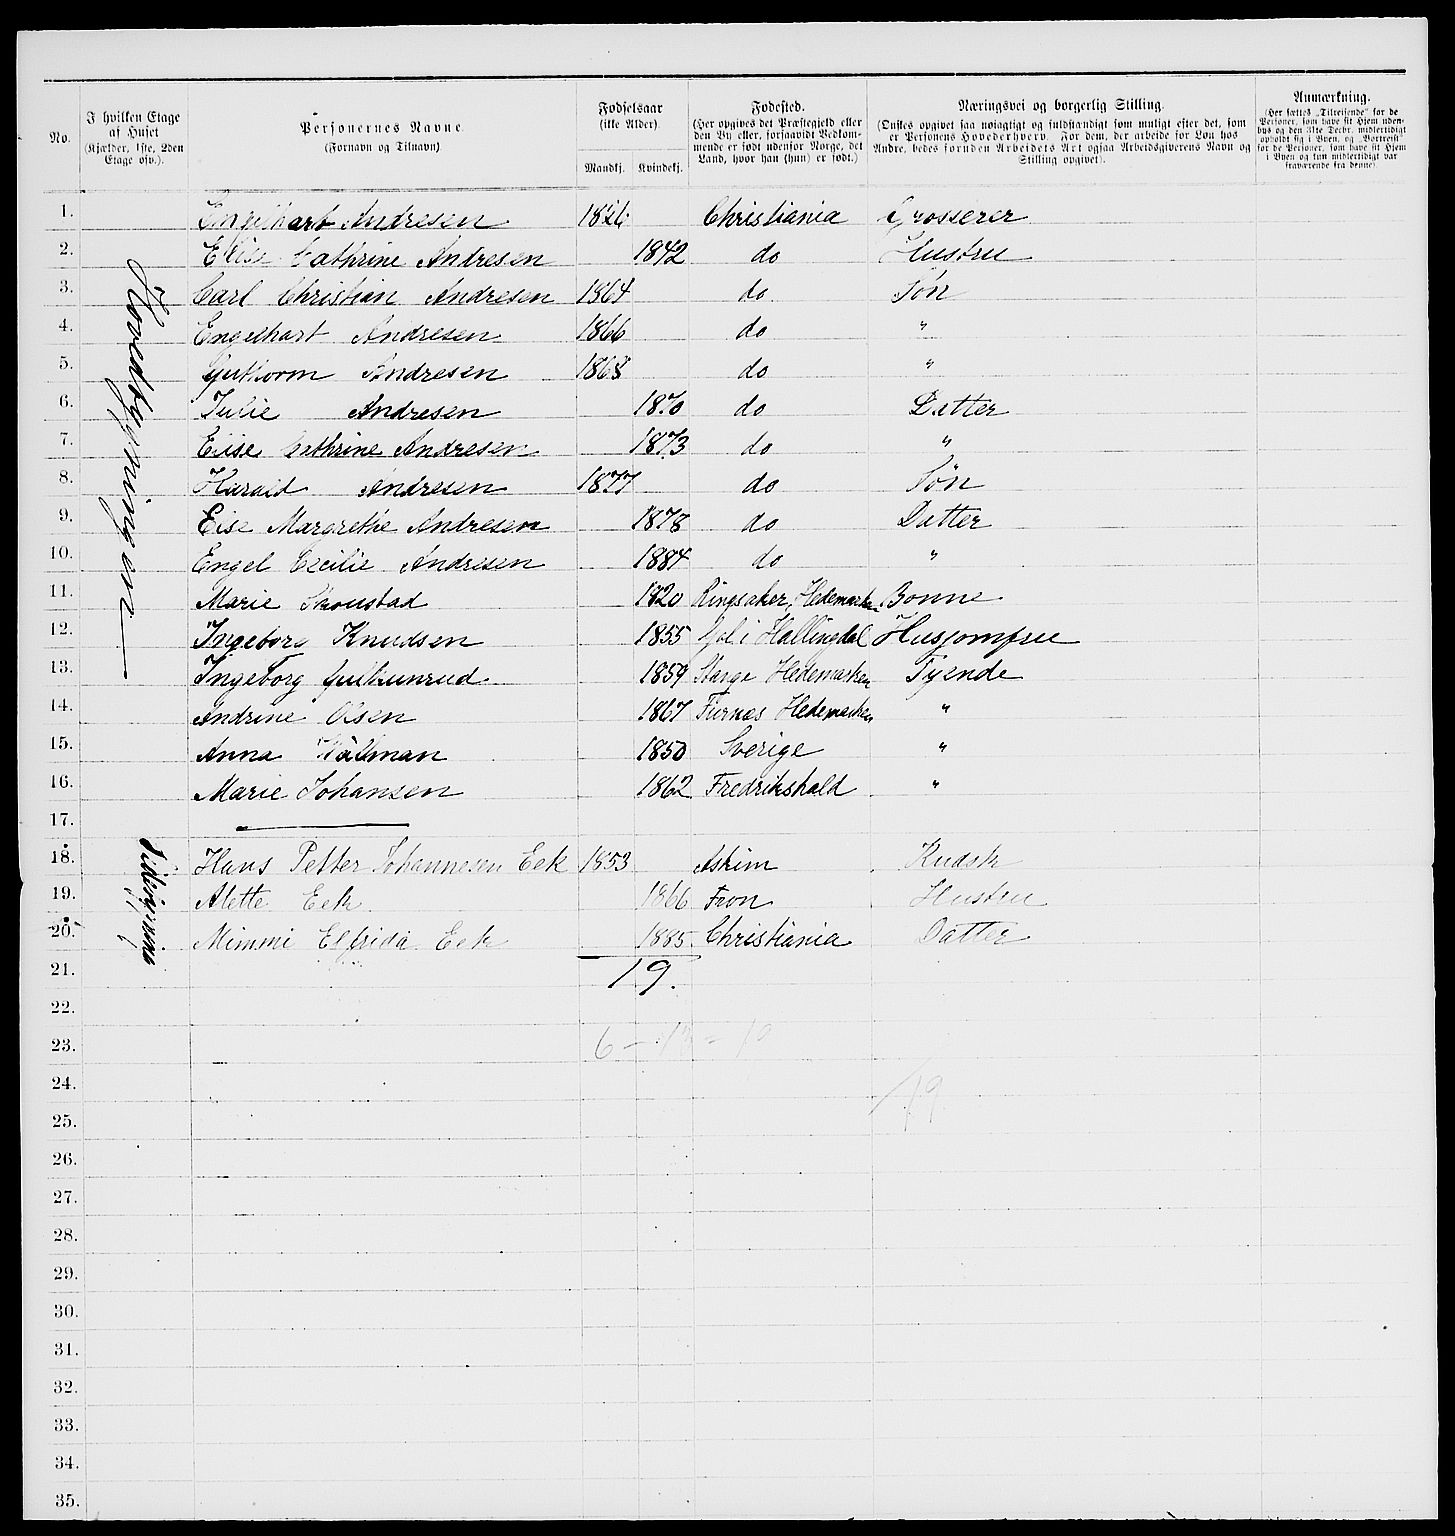 No.
I hvilken Etage af Huset
(Kjælder, 1ste, 2den Etage osv.).
Personernes Navne
(Fornavn og Tilnavn)
Fødselsaar
(ikke Alder).
Mandkj. Kvindekj.
Fødested.
(Her opgives det Præstegjeld eller
den By eller, forsaavidt Vedkom-
mende er født udenfor Norge, det
Land, hvor han (hun) er født.)
Næringsvei og borgerlig Stilling.
(Ønskes opgivet saa nøiagtigt og fuldstændigt som muligt efter det, som
er Personens Hovederhverv. For dem, der arbeide for Løn hos
Andre, bedes foruden Arbeidets Art ogsaa Arbeidsgiverens Navn og
Stilling opgivet).
Anmærkning.
(Her sættes „Tilreisende" for de
Personer, som have sit Hjem uden-
bys og den 31te Decbr. midlertidigt
opholdt sig i Byen, og „Bortreist"
for de Personer, som have sit Hjem
i Byen og kun midlertidigt var
fraværende fra denne)
Hovedbygningen
1. Engelhart Andresen Christiania Grosserer
2. Elise Cathrine Andresen 1842 do Hustru
3. Carl Christian Andresen 1864 do. Søn
4. Engelhart Andresen 1866 do "
5. Guthorm Andresen 1868 do "
6. Julie Andresen 1870 do Datter
7. Elise Cathrine Andresen 1873 do "
8. Harald Andresen 1877 do Søn
9. Elise Margrethe Andresen 1878 do Datter
10. Engel Cecilie Andresen 1884 do "
11. Marie Skoustad 1820 Ringsaker, Hedemarken Bonne
12. Ingeborg Knudsen 1855 Gol i Hallingdal Husjomfru
13. Ingeborg 1859 Stange Hedemarken Tyende
14. Andrine Olsen 1867 Furnes Hedemarken "
15. Anna Wallman 1850 Sverige "
16. Marie Johansen 1862 Fredrikshald "
17.
Sidebygning
18. Hans Petter Johannesen Eek 1853 Askim Kudsk
19. Alette Eek 1866 Fron Hustru
20. Mimmi Elfrida Eek 1885 Christiania Datter
21. 19.
22.
23. 6 – 13 =
24. 19
25.
26.
27.
28.
29.
30.
31.
32.
33.
34.
35.